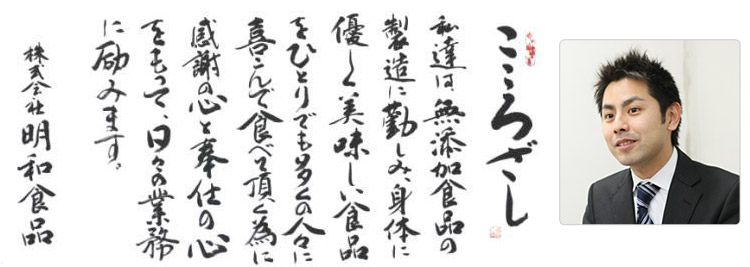 こころざし
私達は、無添加食品の
製造に勤しみ、身体に
優しく美味しい食品
をひとりでも多くの人々に
喜こんで食べて頂く為に
感謝の心と奉仕の心
をもって、日々の業務
に励みます。
株式会社 明和食品